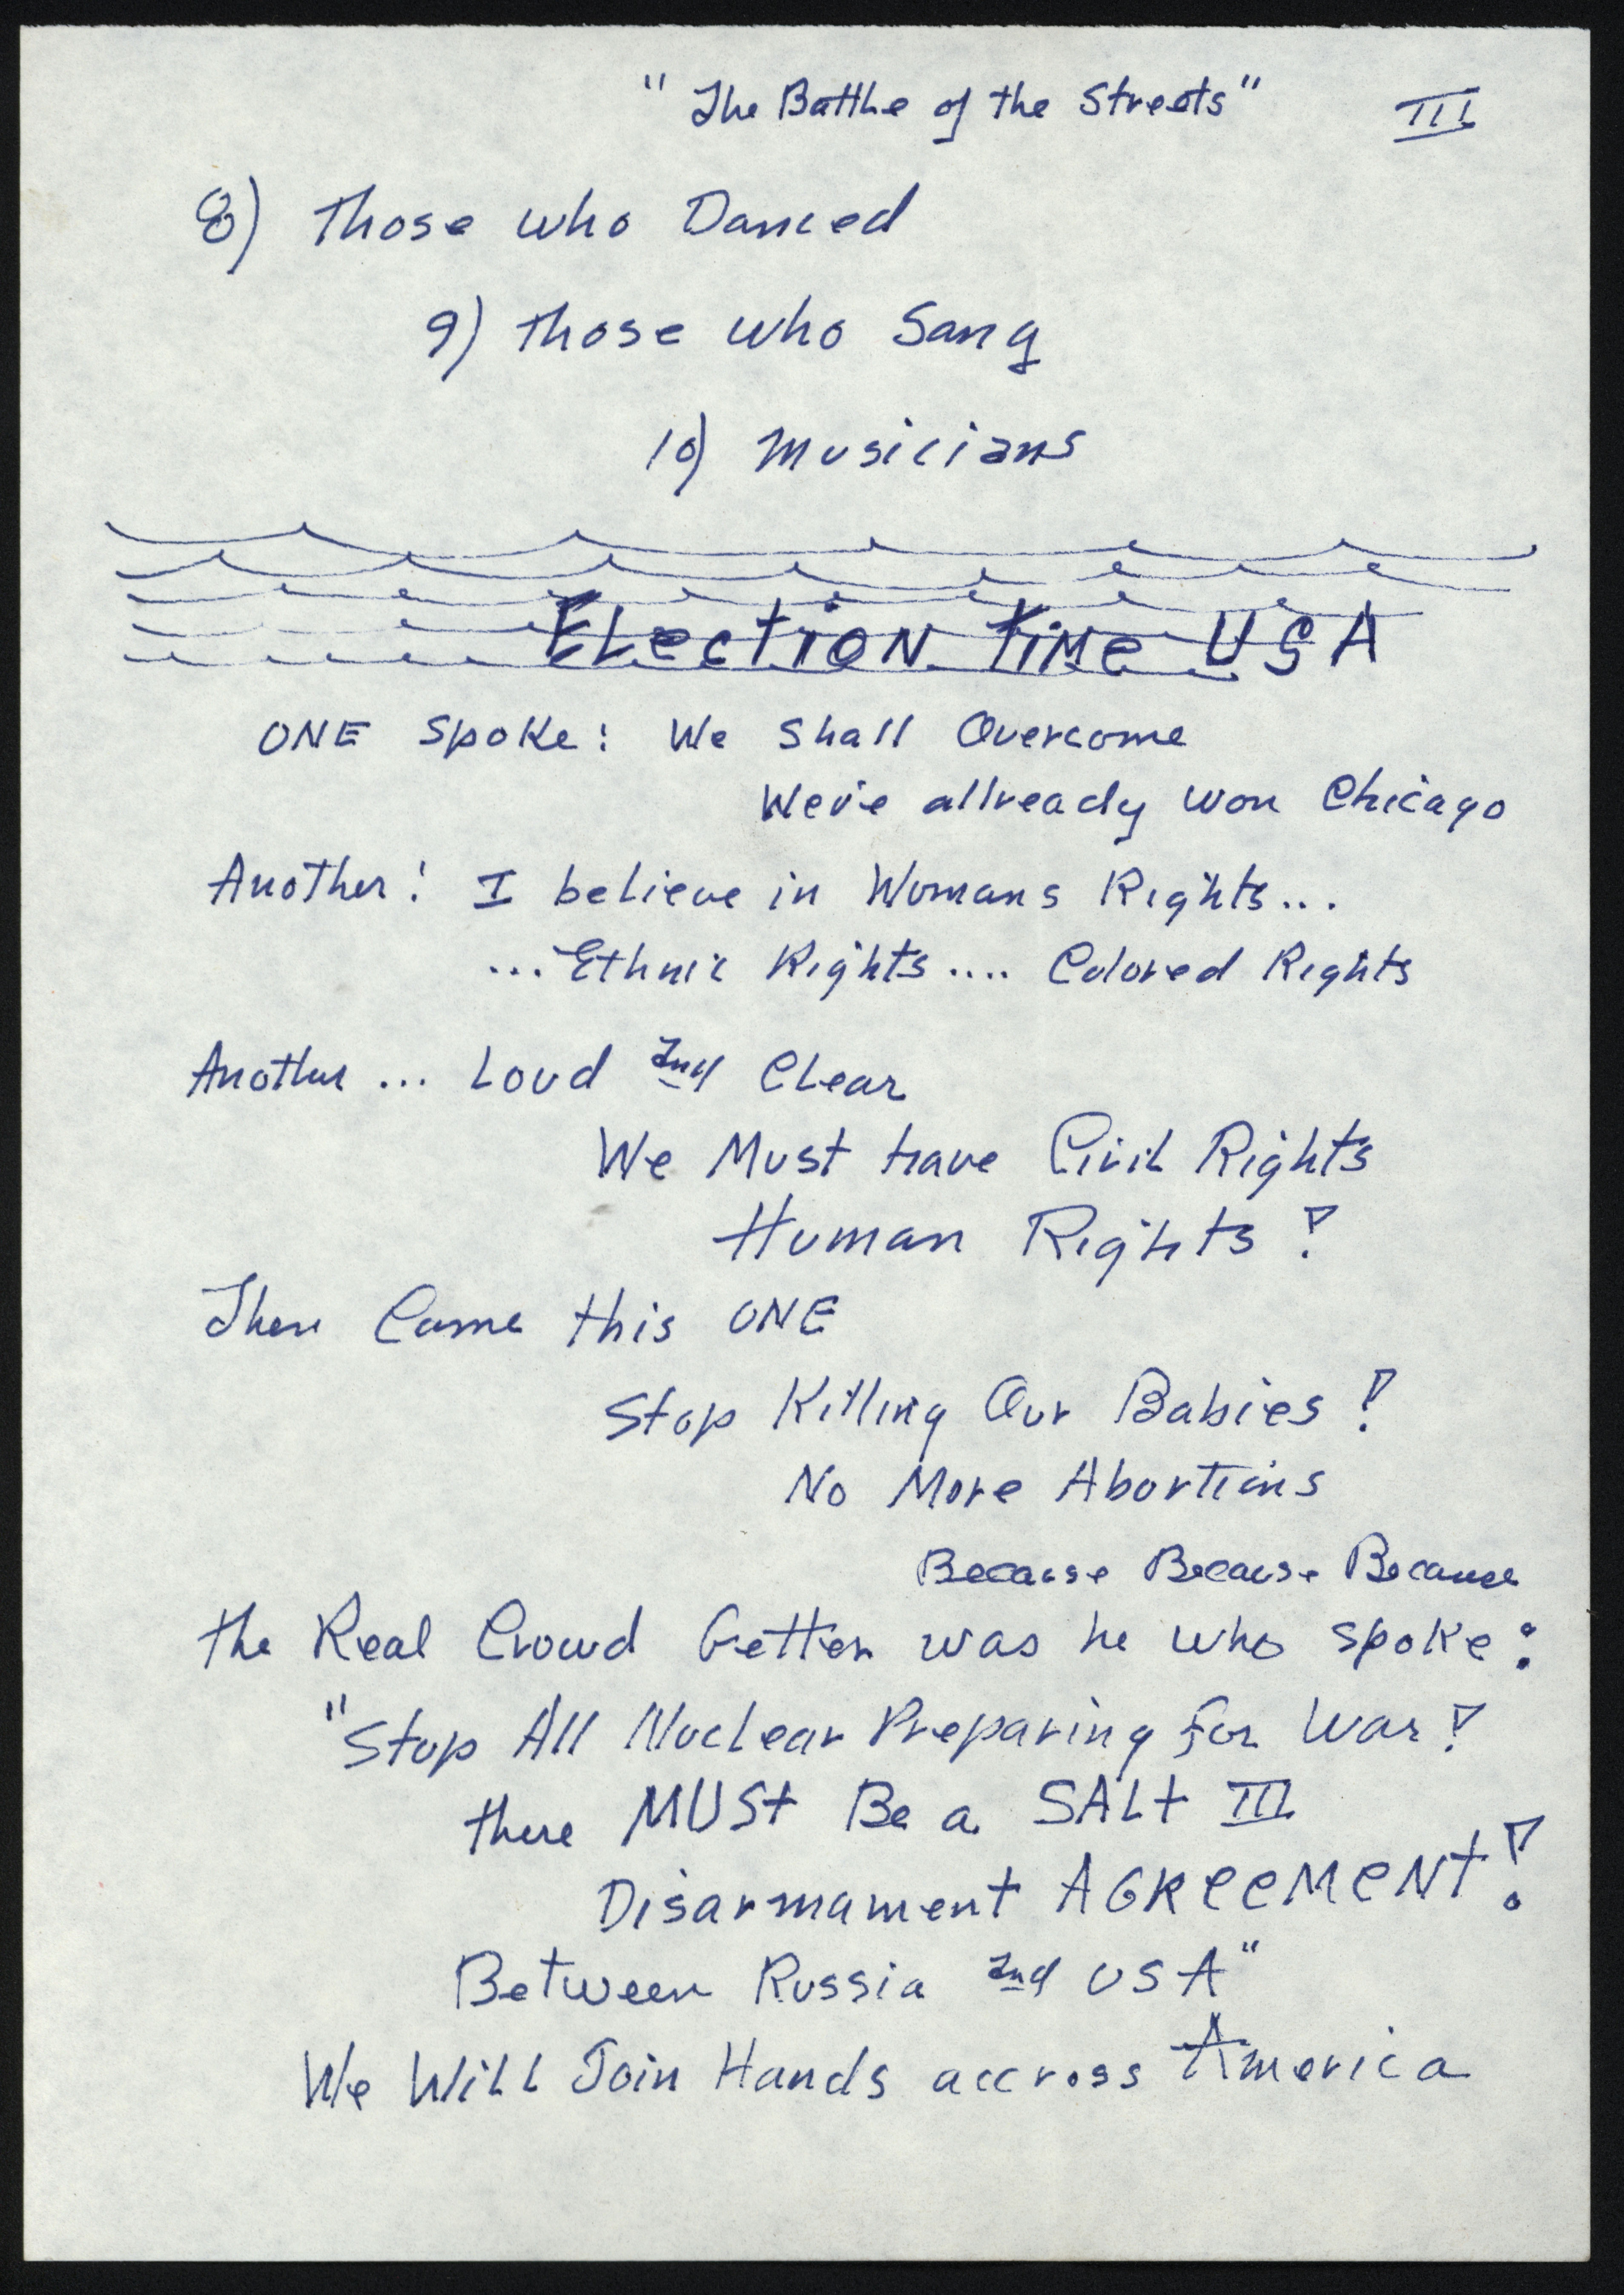 "The Battle of the Streets" III
8) Those who Danced
9) Those who Sang
10) Musicians
Election Time USA
ONE Spoke: We Shall Overcome
We've allready won Chicago
Another: I believe in Womans Rights...
...Ethnic Rights.... Colored Rights
Another... Loud and Clear
We Must have Civil Rights
Human Rights!
Then Came this ONE
Stop Killing Our Babies!
No More Abortions
Because Because Because
the Real Crowd Getter was he who spoke:
"Stop All Nuclear Preparing for War!
there MUST Be a SALT III
Disarmament AGREEMENT!
Between Russia and USA"
We Will Join Hands accross America